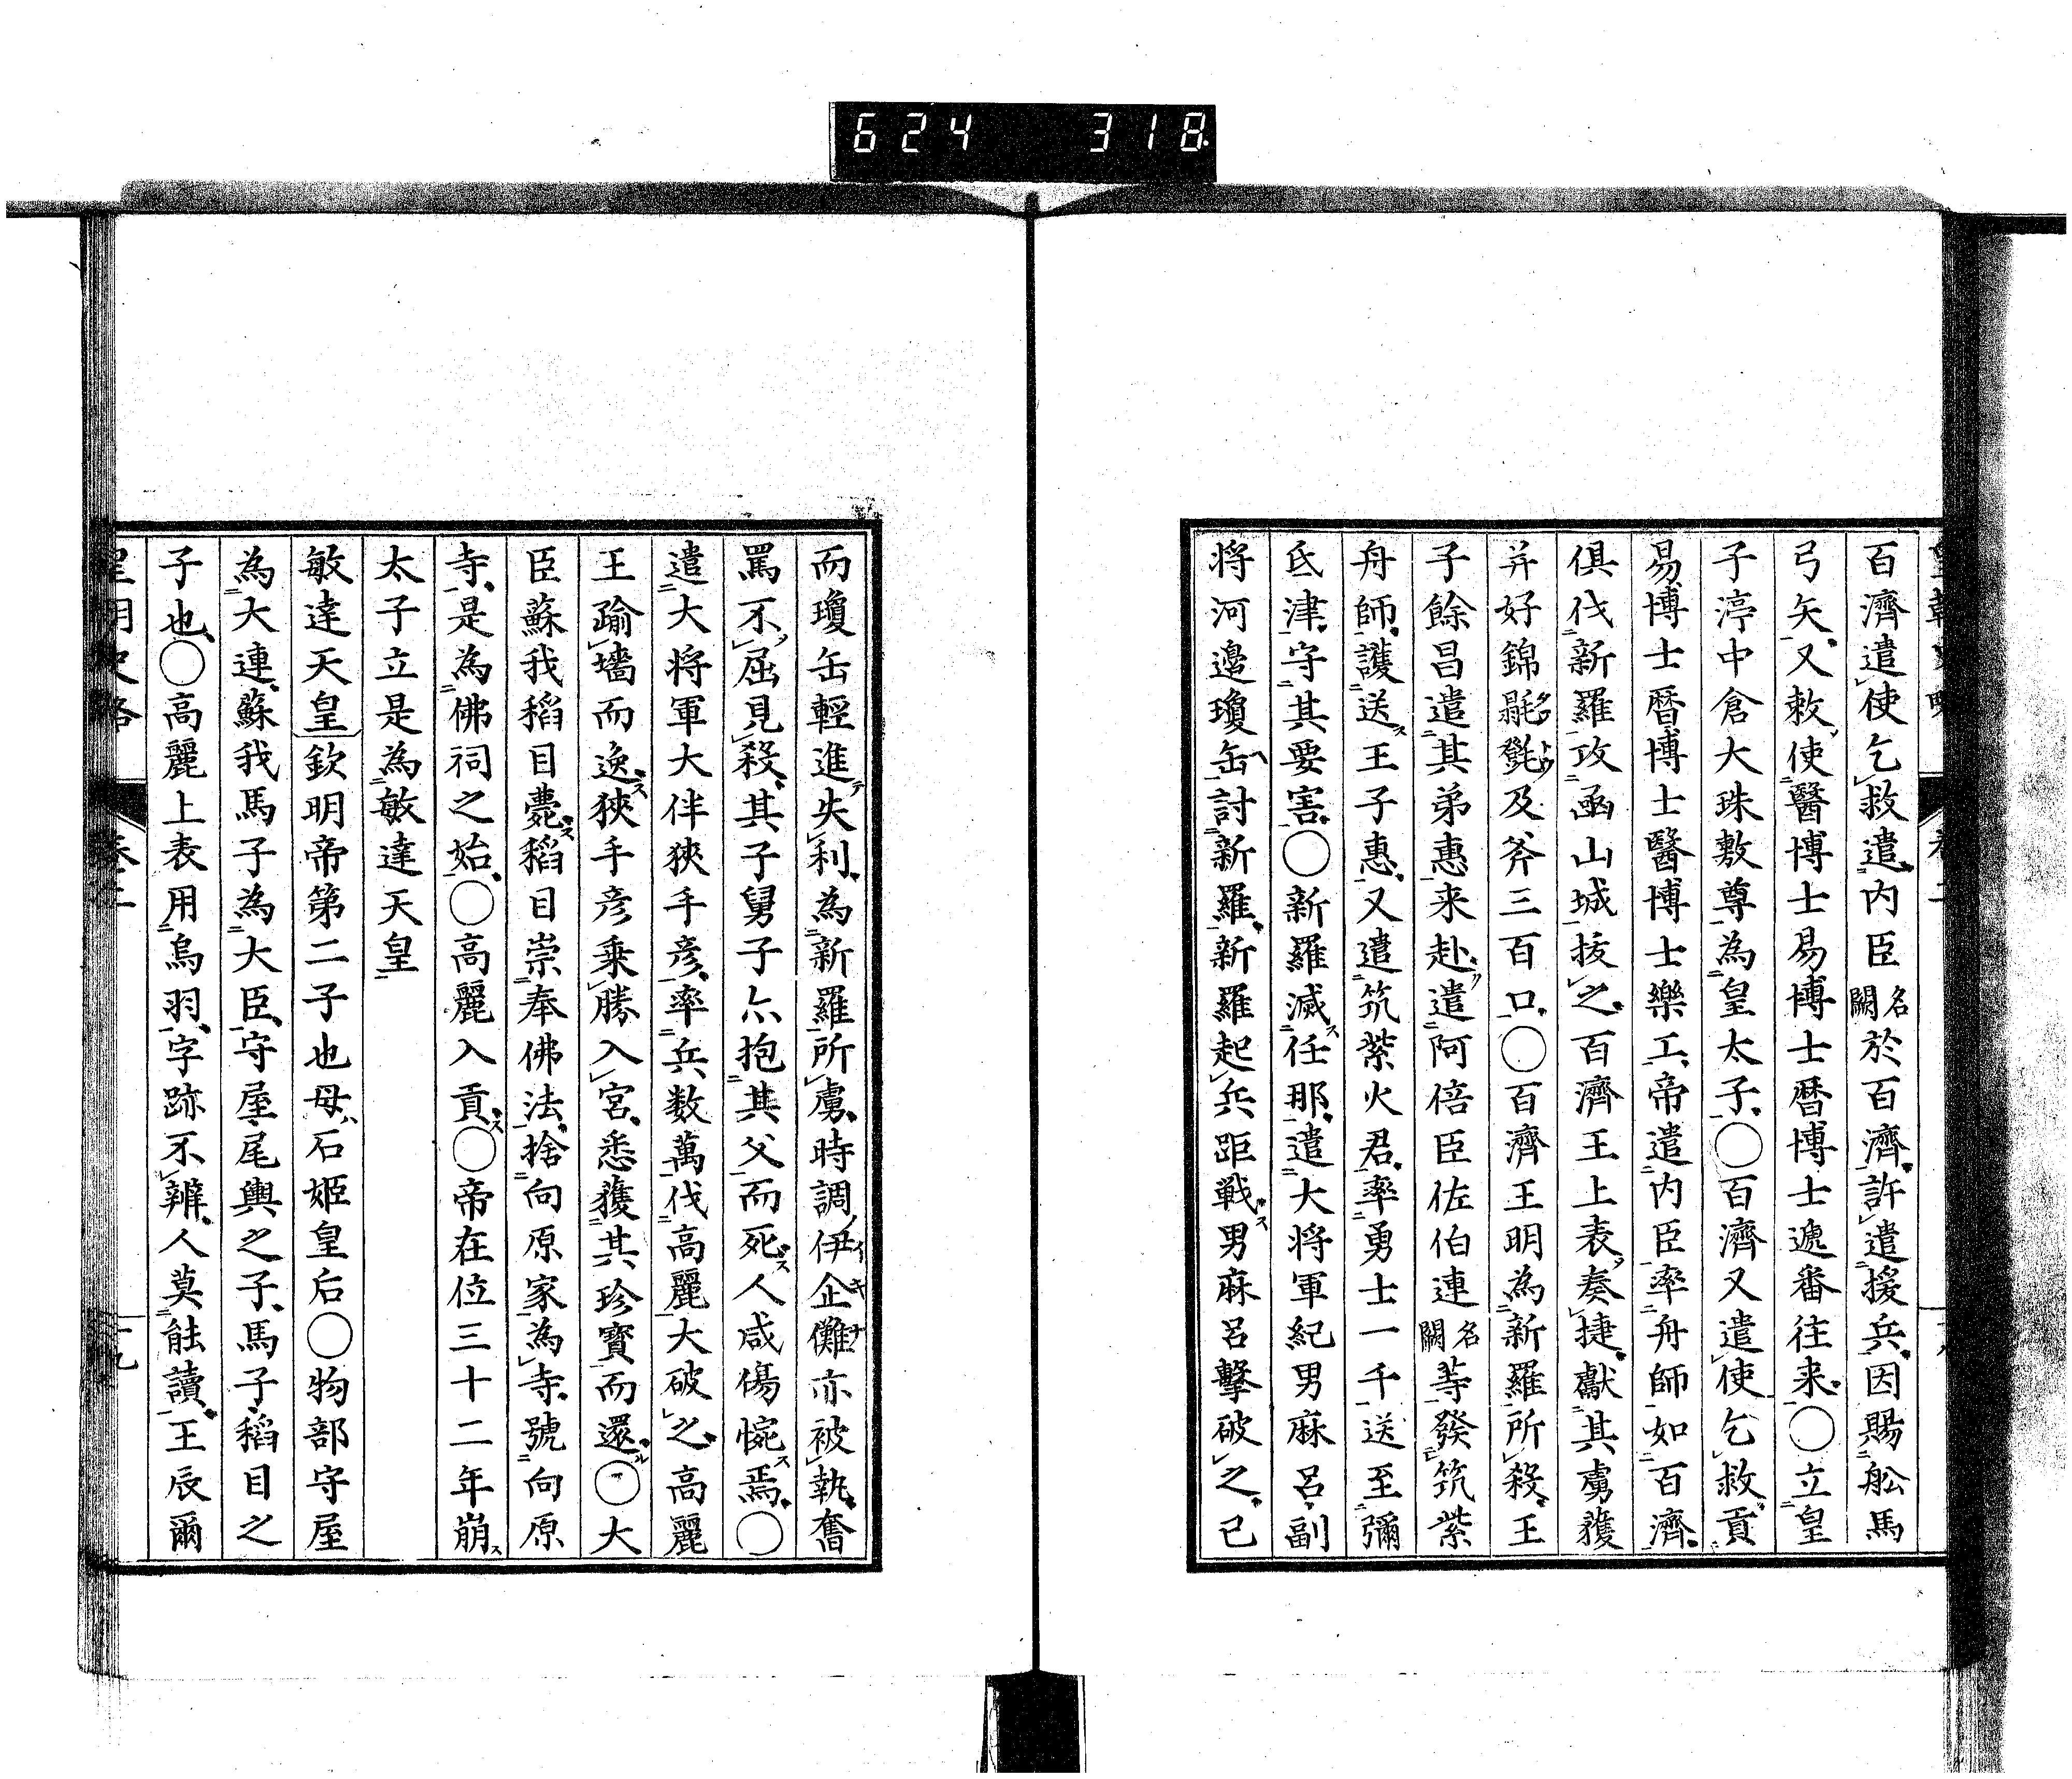 624 318
百濟遣使乞救遣内臣名闕於百濟許遣援兵因賜舩馬
弓矢又敕使醫博士易博士暦博士遞番往来〇立皇
子渟中倉大珠敷尊為皇太子〇百濟又遣使乞救貢
易博士暦博士醫博士樂工帝遣内臣率舟師如百濟
俱伐新羅攻函山城拔之百濟王上表奏捷獻其虜獲
并好錦毾㲪及斧三百口〇百濟王明為新羅所殺王
子餘昌遣其弟惠来赴遣阿倍臣佐伯連名闕等發筑紫
舟師護送王子惠又遣筑紫火君率勇士一千送至彌
氐津守其要害〇新羅滅任那遣大将軍紀男麻呂副
将河邉瓊缶討新羅新羅起兵距戦男麻呂擊破之已
而瓊缶輕進失利為新羅所虜時調伊企儺亦被執奮
罵不屈見殺其子舅子亦抱其父而死人咸傷惋焉〇
遣大将軍大伴狹手彦率兵数萬伐高麗大破之高麗
王踰墻而逸狹手彦乗勝入宮悉獲其珍寳而還〇大
臣蘇我稻目薨稻目崇奉佛法捨向原家為寺號向原
寺是為佛祠之始〇高麗入貢〇帝在位三十二年崩
太子立是為敏達天皇
敏達天皇欽明帝第二子也母石姫皇后〇物部守屋
為大連蘇我馬子為大臣守屋尾輿之子馬子稻目之
子也〇高麗上表用烏羽字跡不辨人莫能讀王辰爾